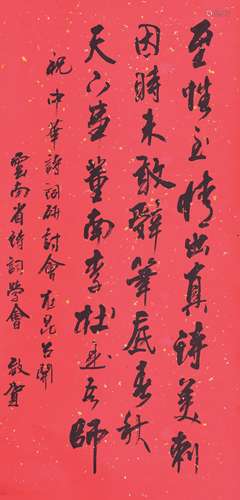 至性至情出真詩美刺
因時未敢辭筆底春秋
天下事董南李杜是吾師
祝中華詩詞研討會在昆召開
雲南省詩詞學會 敬賀